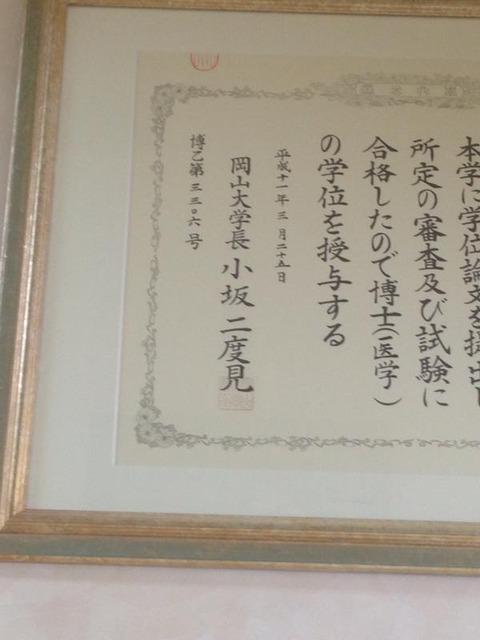 本学に学位論文を提出し
所定の審査及び試験に
合格したので博士（医学）
の学位を授与する
平成十一年三月二十五日
岡山大学長 小坂二度見
博乙第三三〇六号